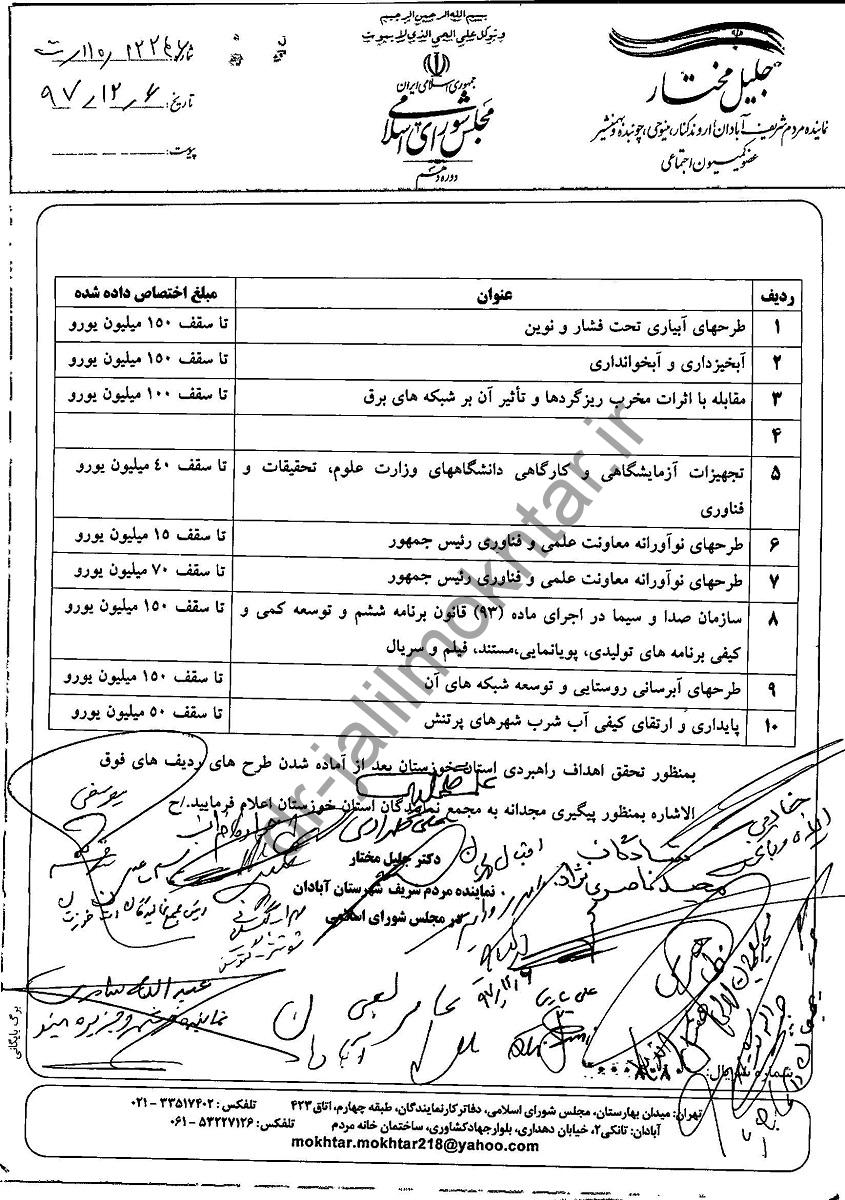 بسم الله الرحمن الرحیم
و توکل علی الحی الذی لا یموت
جمهوری اسلامی ایران
مجلس شورای اسلامی
دوره دهم
جلیل مختار
نماینده مردم شریف آبادان، اروندکنار، منیوحی، چوئبده و بهمنشیر
عضو کمیسیون اجتماعی
شماره
تاریخ ۹۷/۱۲/۶
پیوست:
ردیف عنوان مبلغ اختصاص داده شده
۱ طرحهای آبیاری تحت فشار و نوین تا سقف ۱۵۰ میلیون یورو
۲ آبخیزداری و آبخوانداری تا سقف ۱۵۰ میلیون یورو
۳ مقابله با اثرات مخرب ریزگردها و تأثیر آن بر شبکه های برق تا سقف ۱۰۰ میلیون یورو
۴
۵ تجهیزات آزمایشگاهی و کارگاهی دانشگاههای وزارت علوم، تحقیقات و تا سقف ۴۰ میلیون یورو
فناوری
۶ طرحهای نوآورانه معاونت علمی و فناوری رئیس جمهور تا سقف ۱۵ میلیون یورو
۷ طرحهای نوآورانه معاونت علمی و فناوری رئیس جمهور تا سقف ۷۰ میلیون یورو
۸ سازمان صدا و سیما در اجرای ماده (۹۳) قانون برنامه ششم و توسعه کمی و تا سقف ۱۵۰ میلیون یورو
کیفی برنامه های تولیدی، پویانمایی،مستند، فیلم و سریال
۹ طرحهای آبرسانی روستایی و توسعه شبکه های آن تا سقف ۱۵۰ میلیون یورو
۱۰ پایداری و ارتقای کیفی آب شرب شهرهای پرتنش تا سقف ۵۰ میلیون یورو
بمنظور تحقق اهداف راهبردی استان خوزستان بعد از آماده شدن طرح های ردیف های فوق
الاشاره بمنظور پیگیری مجدانه به مجمع نمایندگان استان خوزستان اعلام فرمایید./ح
دکتر جلیل مختار
نماینده مردم شریف شهرستان آبادان
در مجلس شورای اسلامی
یوسفی
شادگان
محمد ناصری نژاد
اقبال
عبدالله سامری
عامر کعبی
آبادان
برگ بایگانی
شماره سریال:
dr-jalilmokhtar.ir
تهران: میدان بهارستان، مجلس شورای اسلامی، دفاتر کار نمایندگان، طبقه چهارم، اتاق ۴۲۳ تلفکس: ۳۳۵۱۷۴۰۲ - ۰۲۱
آبادان: تانکی۲، خیابان دهداری، بلوار جهادکشاورزی، ساختمان خانه مردم تلفکس: ۵۳۲۲۷۱۲۶ - ۰۶۱
mokhtar.mokhtar218@yahoo.com